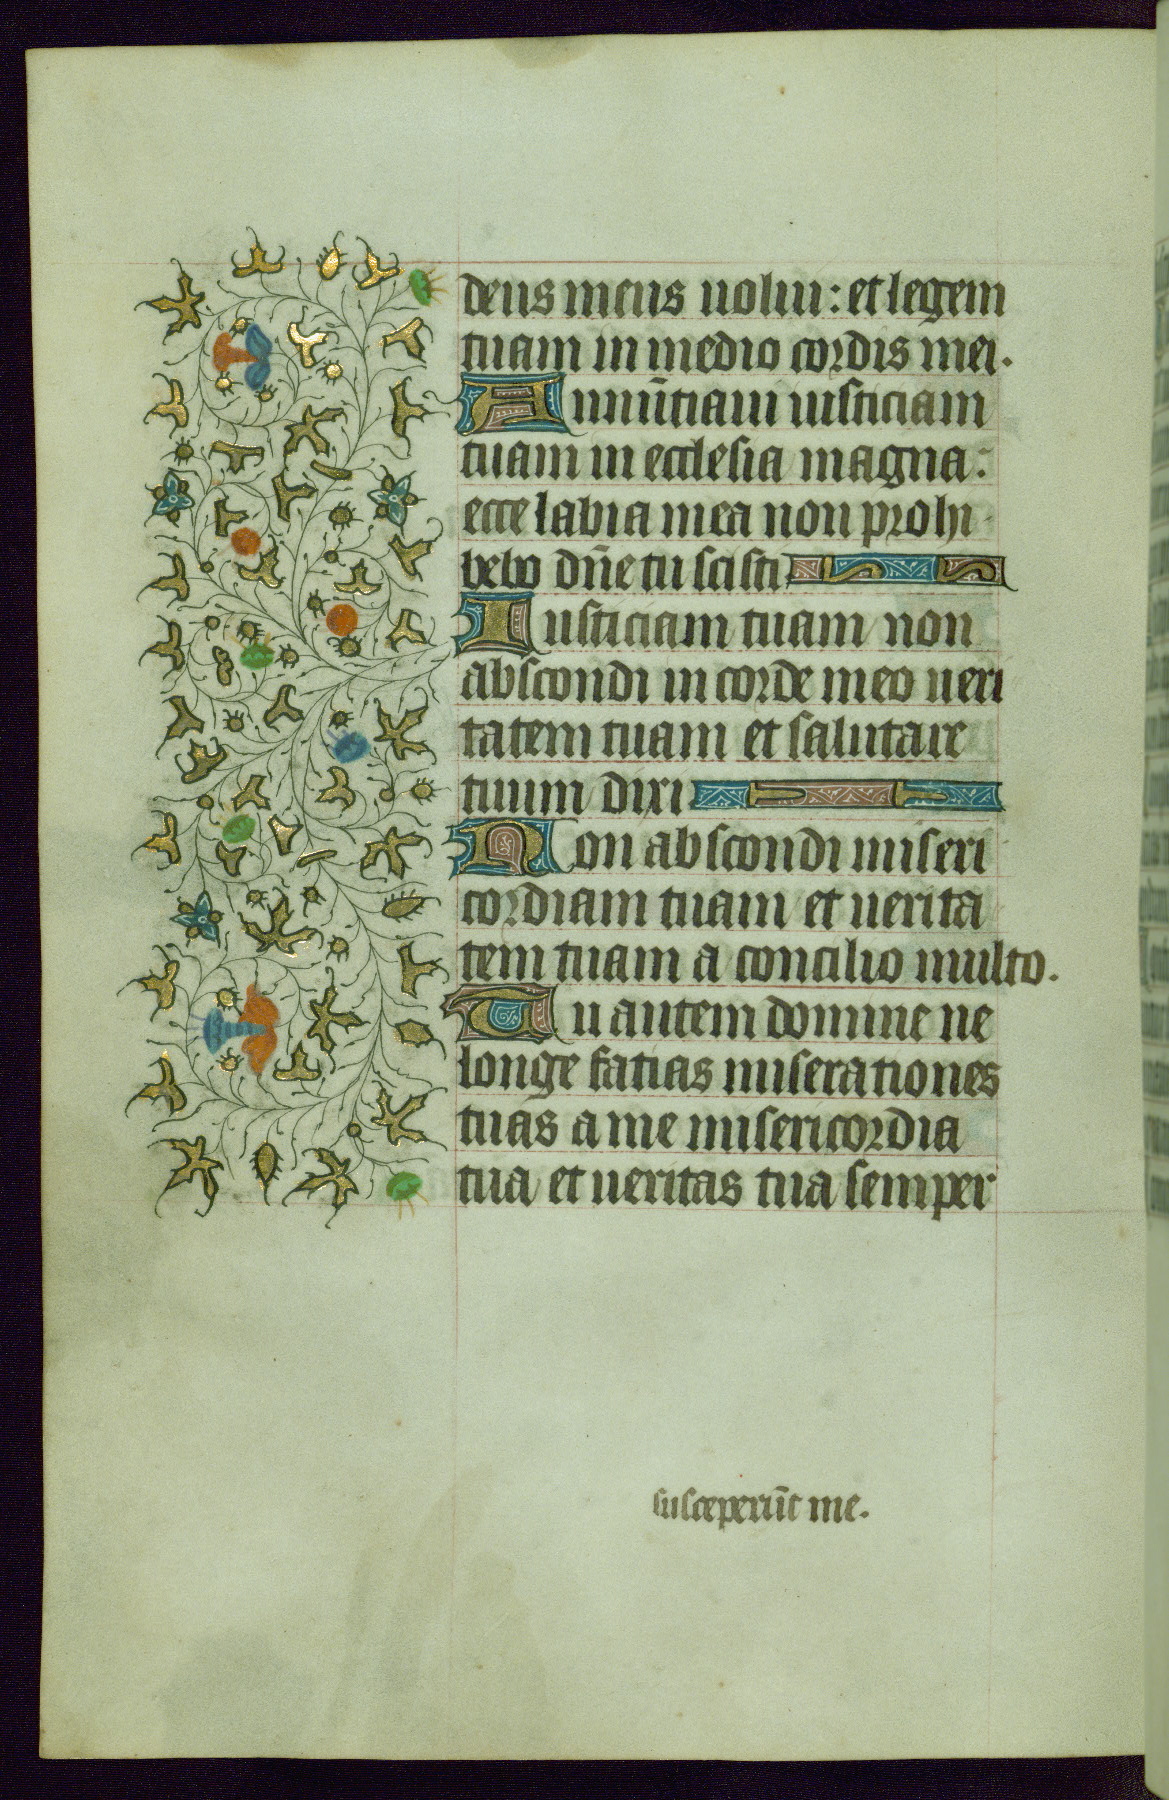 deus meus uolui: et legem
tuam in medio cordis mei.
Annūtiaui iusticiam
tuam in ecclesia magna:
ecce labia mea non prohi
bebo dn̄e tu scisti
Iusticiam tuam non
abscondi in corde meo ueri
tatem tuam et salutare
tuum dixi
Non abscondi miseri
cordiam tuam et uerita
tem tuam a concilio multo.
Tu autem domine ne
longe facias miserationes
tuas a me misericordia
tua et ueritas tua semper
susceperūt me.